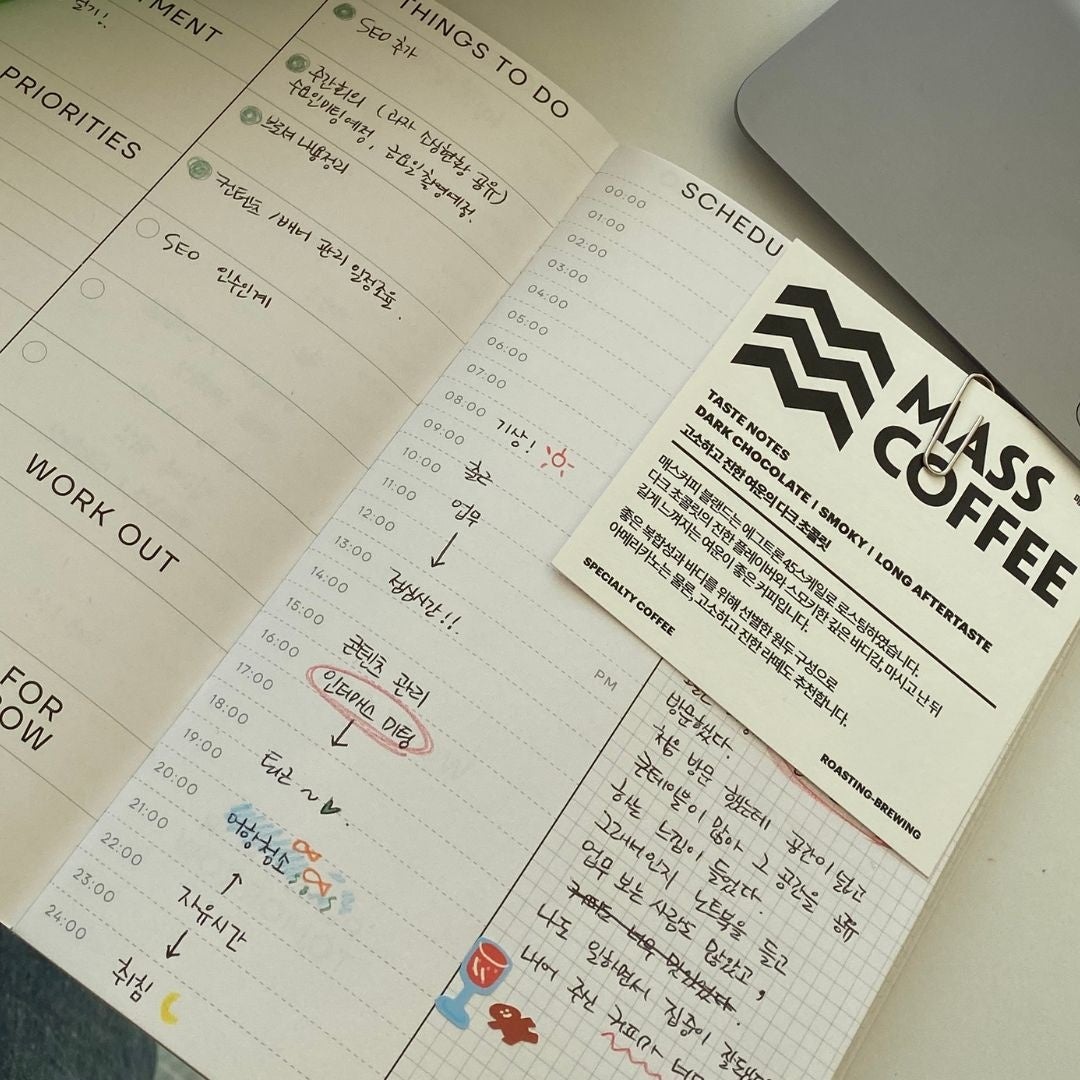 TMENT
PRIORITIES
WORK OUT
FOR
OW
THINGS TO DO
SEO 추가
주간회의 (과자 소싱현황 공유)
수요일미팅예정, 금요일촬영예정.
브로셔 내용정리
컨텐츠 / 배너 관리 일정조율.
SEO 인수인계
SCHEDU
00:00
01:00
02:00
03:00
04:00
05:00
06:00
07:00
08:00
09:00 기상!
10:00 출근
11:00 업무
12:00
13:00
14:00 점심시간!!
15:00
16:00 콘텐츠 관리
17:00 인터매스 미팅
18:00
19:00 퇴근 ~
20:00
21:00 어항청소
22:00
23:00 자유시간
24:00
취침
MASS
COFFEE
TASTE NOTES
DARK CHOCOLATE | SMOKY | LONG AFTERTASTE
고소하고 진한 여운의 다크 초콜릿
매스커피 블랜드는 에그트론 45스케일로 로스팅하였습니다.
다크 초콜릿의 진한 플레이버와, 스모키한 깊은 바디감, 마시고 난 뒤
길게 느껴지는 여운이 좋은 커피입니다.
좋은 복합성과 바디를 위해 선별한 원두 구성으로
아메리카노는 물론, 고소하고 진한 라떼도 추천합니다.
SPECIALTY COFFEE
ROASTING-BREWING
PM
방문했다.
처음 방문 했는데 공간이 넓고
큰테이블이 많아 그 공간을 공유
하는 느낌이 들었다
그래서인지 노트북을 들고
업무 보는 사람도 많았고,
커피도 너무 맛있었다.
나도 일하면서 집중이 잘돼
내어 주신 커피가 너